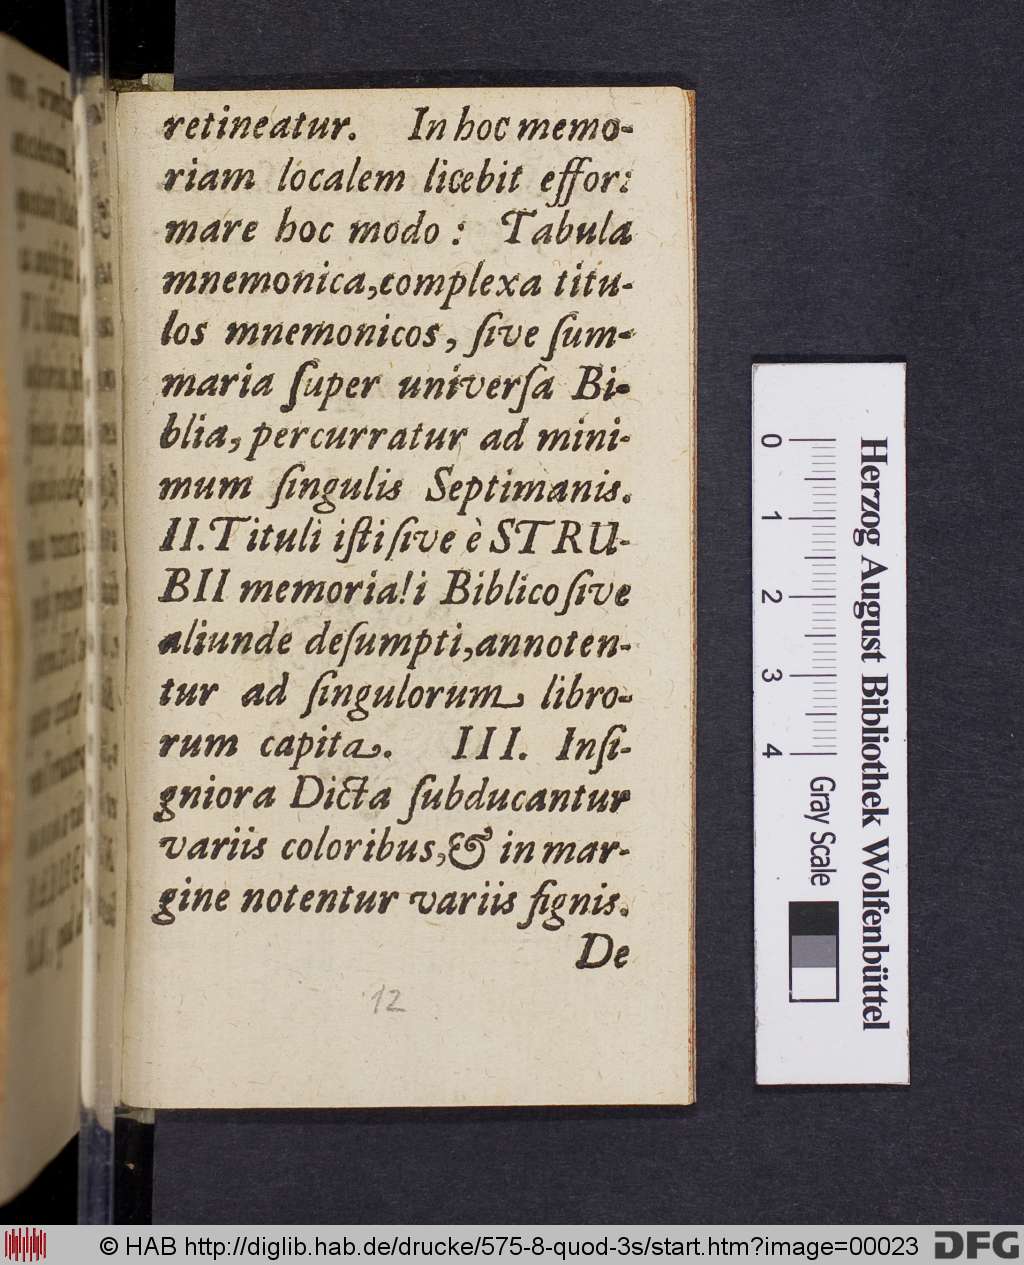 retineatur. In hoc memo-
riam localem licebit effor:
mare hoc modo: Tabula
mnemonica, complexa titu-
los mnemonicos, ſive ſum-
maria ſuper univerſa Bi-
blia, percurratur ad mini-
mum ſingulis Septimanis.
II. Tituli iſti ſive è STRU-
BII memoriali Biblico ſive
aliunde deſumpti, annoten-
tur ad ſingulorum libro-
rum capita. III. Inſi-
gniora Dicta ſubducantur
variis coloribus, & in mar-
gine notentur variis ſignis.
De
12
0 1 2 3 4
Gray Scale
Herzog August Bibliothek Wolfenbüttel
© HAB http://diglib.hab.de/drucke/575-8-quod-3s/start.htm?image=00023
DFG